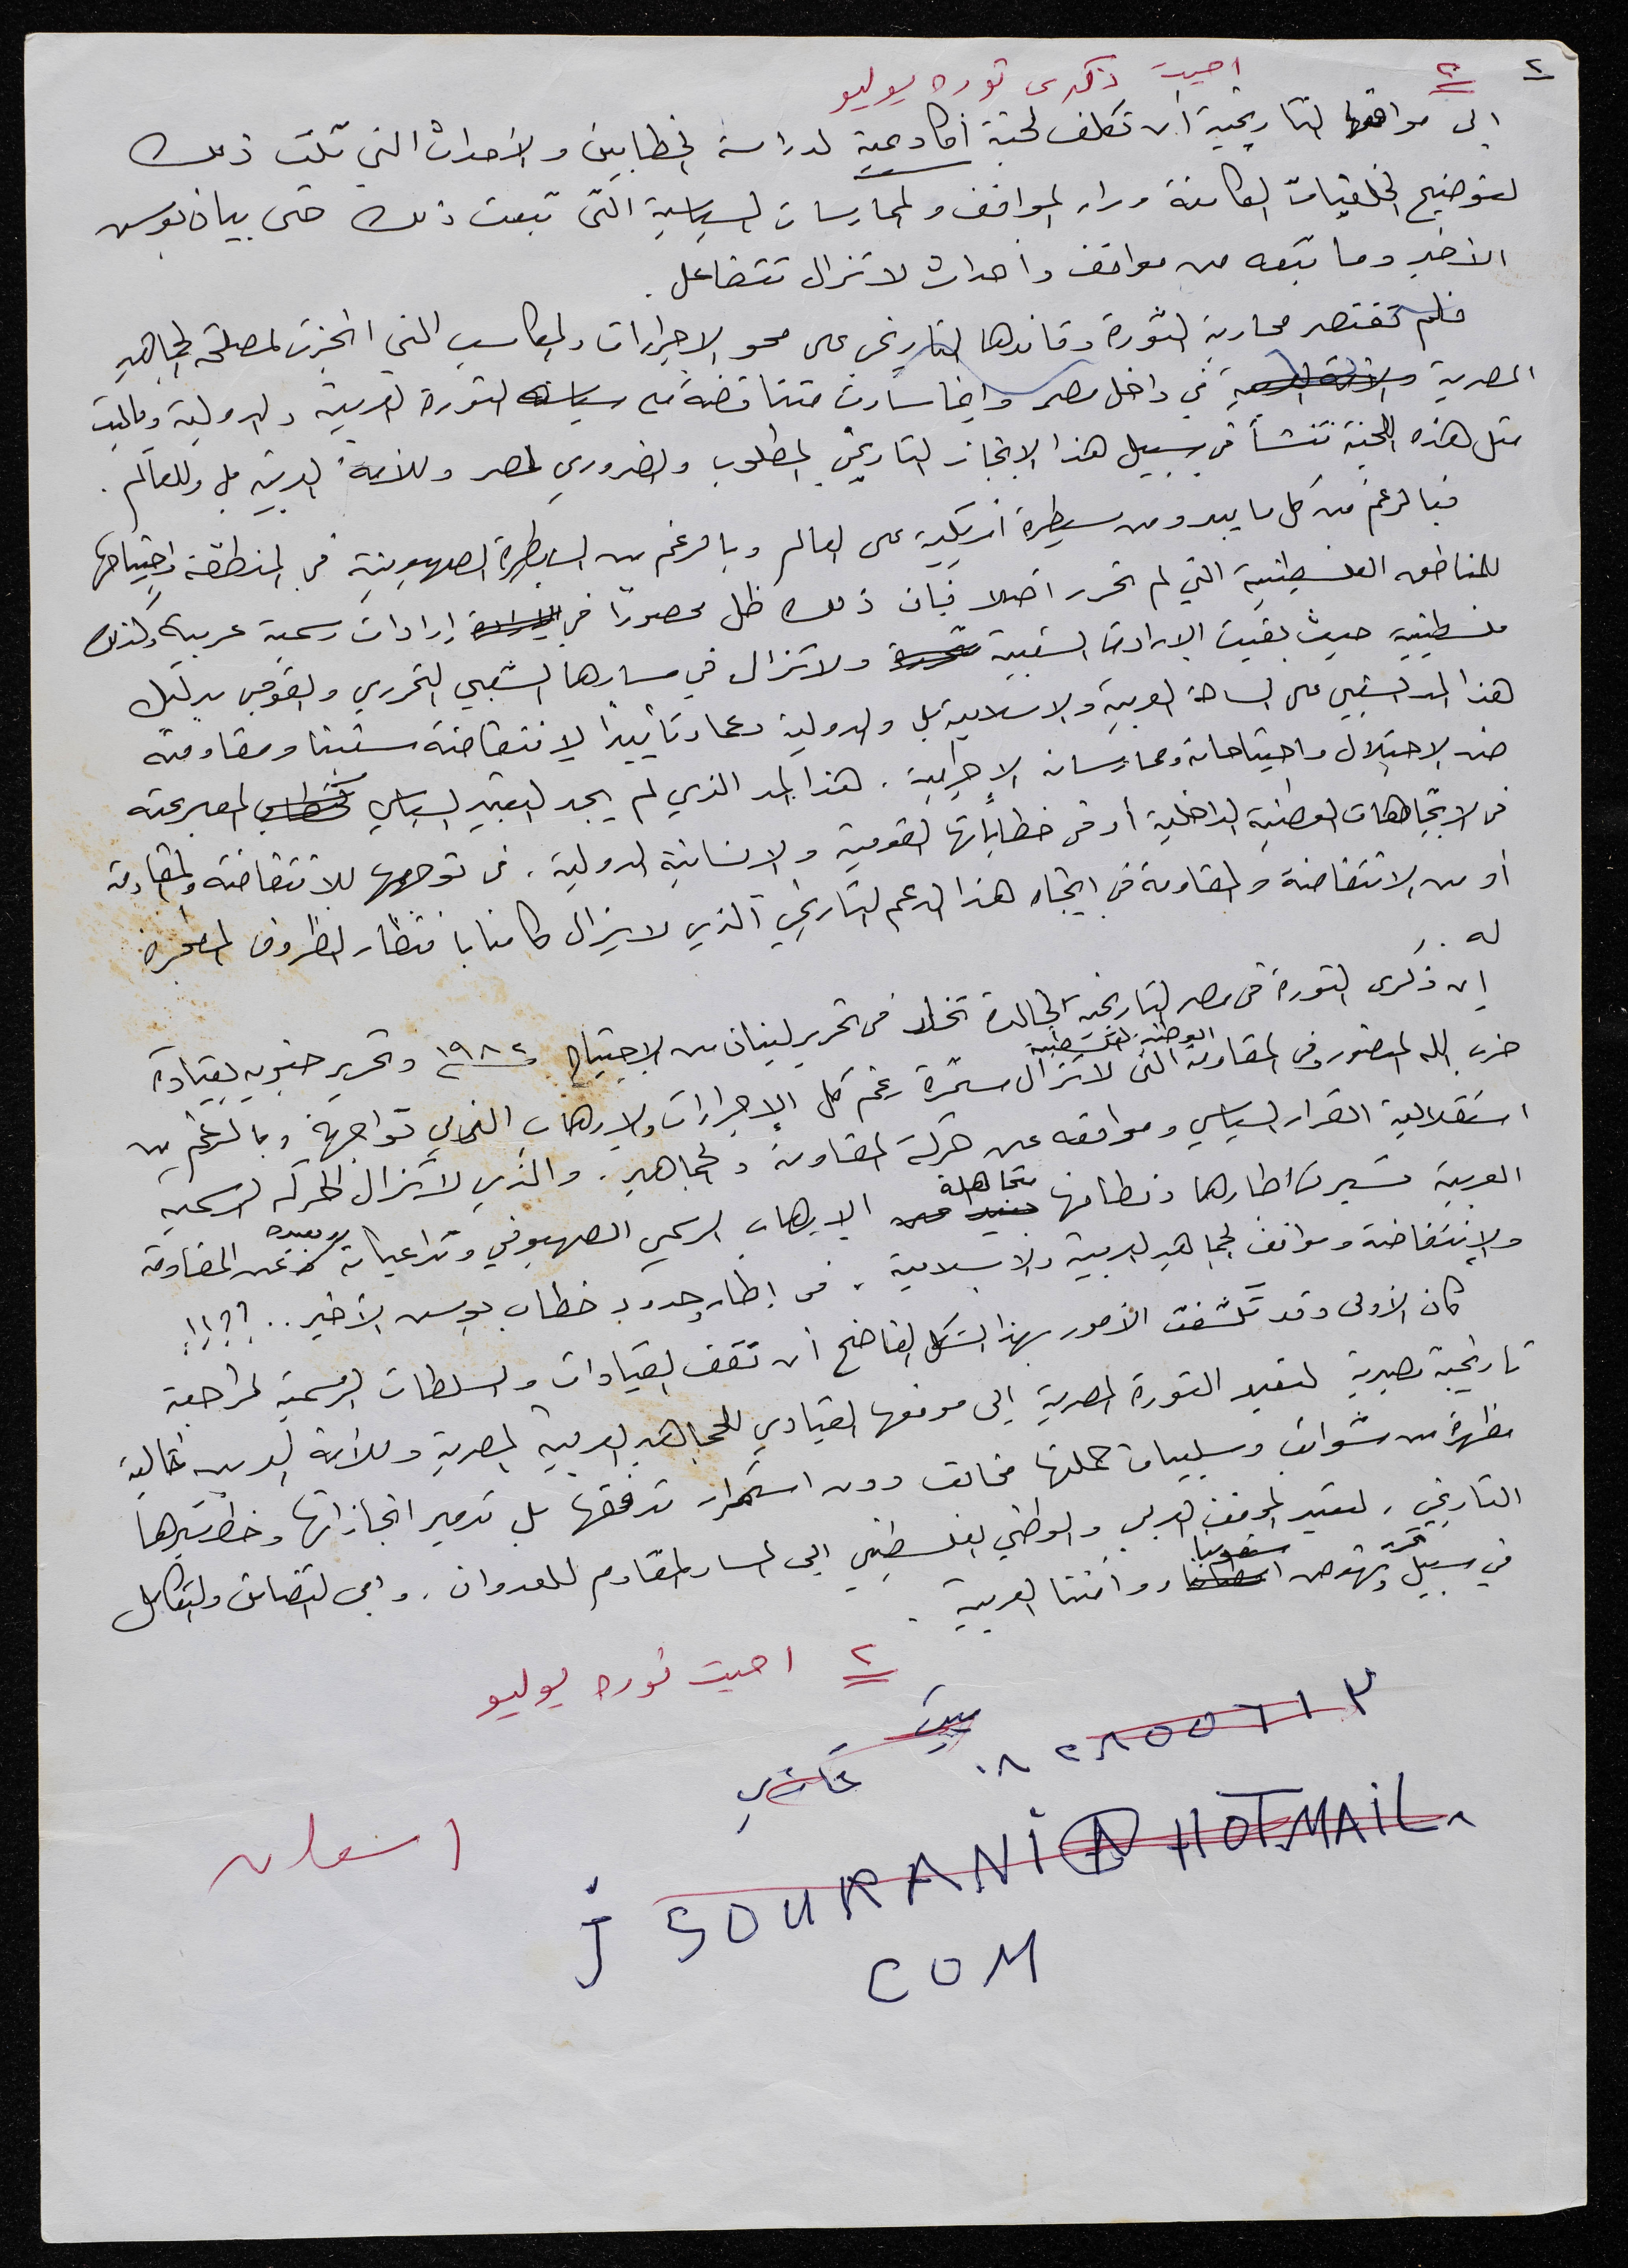 ٢
٢ احيت ذكرى ثورة يوليو
الى مواقعها التاريخية أن تكلف لجنة أكاديمية لدراسة الخطابين والأحداث التي تلت ذلك
لتوضيح الخلفيات الكامنة وراء المواقف والممارسات السياسية التي تبعت ذلك حتى بيان بوش
الأخير وما تبعه من مواقف وأحداث لا تزال تتفاعل.
فلم تقتصر محاربة الثورة وقائدها التاريخي على محو الاجراءات والمكاسب التي انجزت لمصلحة الجماهير
المصرية في داخل مصر وانما سارت متناقضة مع سياسة الثورة العربية والدولية وياليت
مثل هذه اللجنة تنشأ في سبيل هذا الانجاز التاريخي المطلوب والضروري لمصر وللأمة العربية بل وللعالم.
فبالرغم من كل ما يبدو من سيطرة أمريكية على العالم وبالرغم من السيطرة الصهيونية في المنطقة واجتياحها
للمناطق الفلسطينية التي لم تحرر أصلا فإن ذلك ظل محصورًا في إرادات رسمية عربية وكذلك
فلسطينية حيث بقيت الارادة الشعبية ولا تزال في مسارها الشعبي التحرري والقومي بدليل
هذا المد الشعبي على الساحة العربية والاسلامية بل والدولية دعما وتأييدًا لانتفاضة شعبنا ومقاومته
ضد الاحتلال واجتياحاته وممارساته الإجرامية. هذا المد الذي لم يجد التعبير السياسي المعبر عنه
في الاتجاهات الوطنية الداخلية أو في خطاباتها القومية والانسانية الدولية، في توجهها للانتفاضة والمقاومة
أو من الانتفاضة والمقاومة في اتجاه هذا الدعم التاريخي الذي لا يزال كامنا بانتظار الظروف المفجرة
له.
إن ذكرى الثورة في مصر التاريخية الخالدة تخلد في تحرير لبنان من الاجتياح ١٩٨٢ وتحرير جنوبه بقيادة
حزب الله المنصور وفي المقاومة الوطنية الفلسطينية التي لا تزال مستمرة رغم كل الإجراءات والارهاب الذي تواجهه وبالرغم من
استقلالية القرار السياسي ومواقفه عن حركة المقاومة والجماهير. والذي لا تزال الحركة الرسمية
العربية تسير في اطارها ونظامها متجاهلة الارهاب الرسمي الصهيوني وتداعياته وبعيدة عن المقاومة
والإنتفاضة ومواقف الجماهير العربية والاسلامية، في إطار وحدود خطاب بوش الأخير..؟!؟!!
كان الأولى وقد تكشفت الأمور بهذا الشكل الفاضح أن تقف القيادات والسلطات الرسمية لمراجعة
تاريخية مصيرية لتعيد الثورة المصرية إلى موقعها القيادي للجماهير العربية المصرية وللأمة العربية خالية
مطهرة من شوائب وسلبيات حملتها فحالت دون استمرار تدفقها بل تدمير انجازاتها وخط سيرها
التاريخي، لتعيد الموقف العربي والوطني الفلسطيني إلى المسار المقاوم للعدوان. وإلى التضامن والتكامل
في سبيل تحرر ونهوض شعوبنا وأمتنا العربية.
٢ احيت ثورة يوليو
J SOURANI@HOTMAIL.
COM